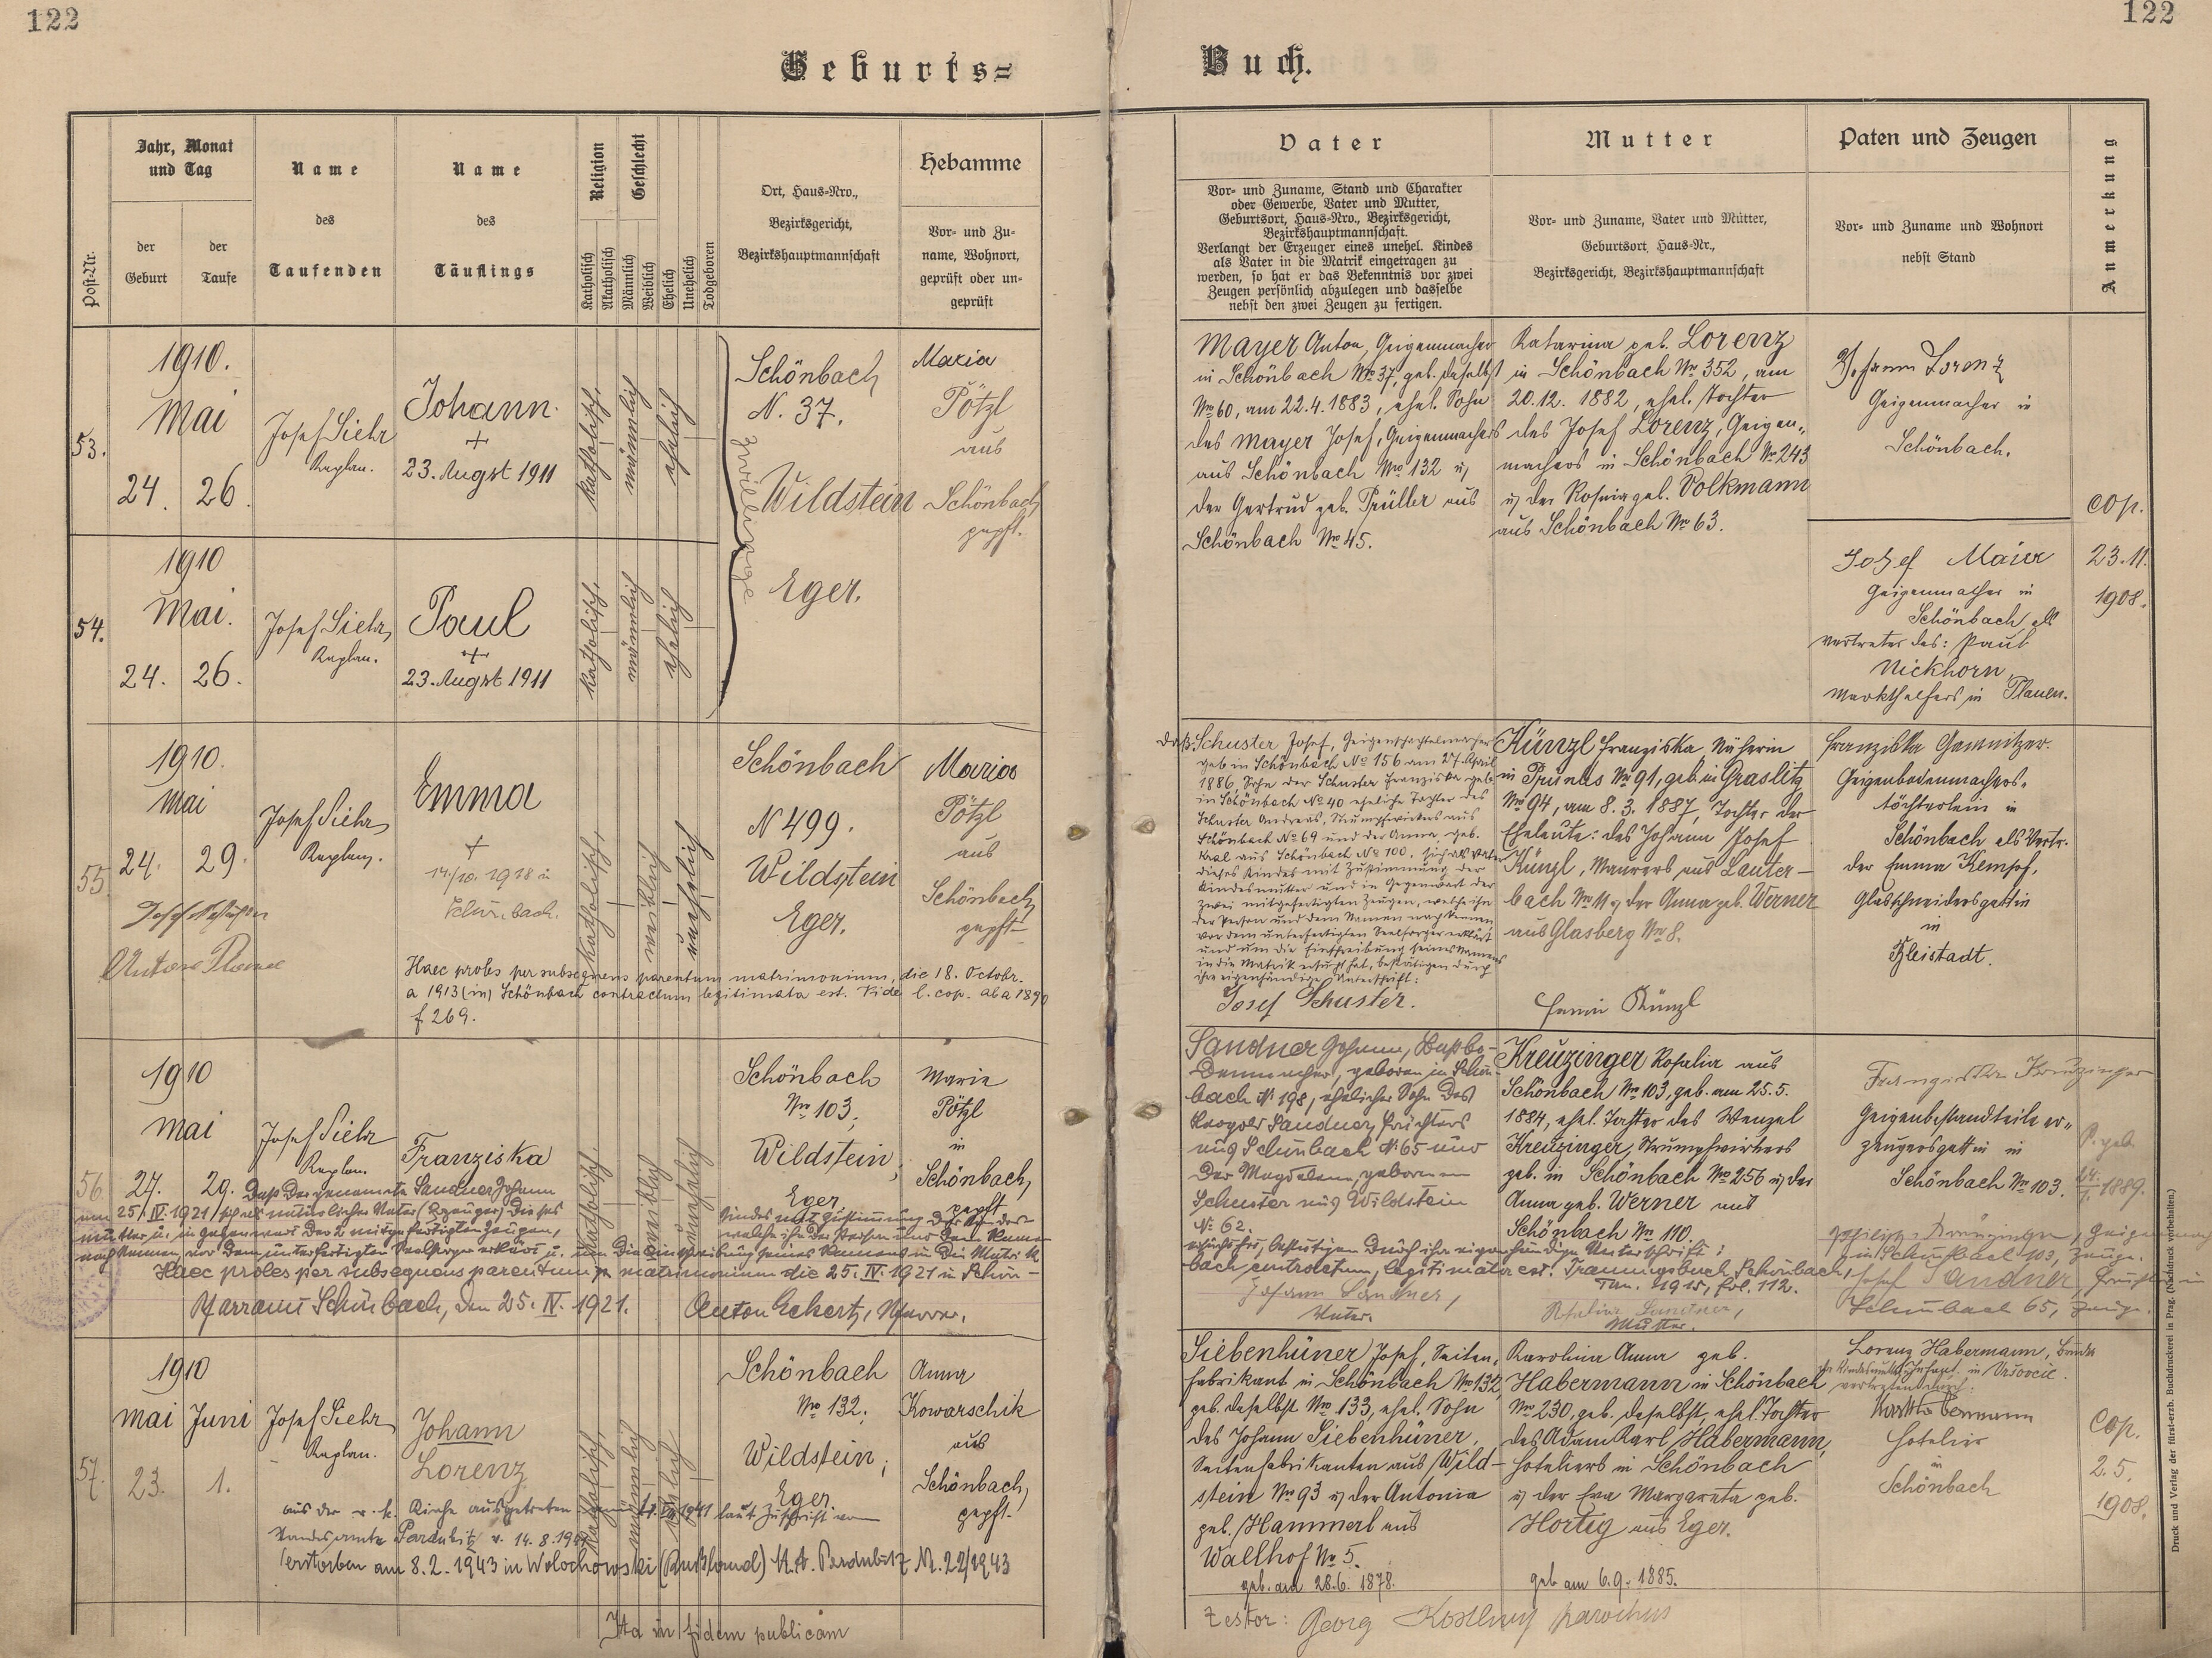 122
122
Geburts=
Buch.
Post-Nr.
Jahr, Monat
und Tag
der
Geburt
der
Taufe
Name
des
Taufenden
Name
des
Täuflings
Religion
Katholisch
Akatholisch
Geschlecht
Männlich
Weiblich
Ehelich
Unehelich
Todgeboren
Ort, Haus-Nro.,
Bezirksgericht,
Bezirkshauptmannschaft
Hebamme
Vor- und Zu-
name, Wohnort,
geprüft oder un-
geprüft
Vater
Vor- und Zuname, Stand und Charakter
oder Gewerbe, Vater und Mutter,
Geburtsort, Haus-Nro., Bezirksgericht,
Bezirkshauptmannschaft.
Verlangt der Erzeuger eines unehel. Kindes
als Vater in die Matrik eingetragen zu
werden, so hat er das Bekenntnis vor zwei
Zeugen persönlich abzulegen und dasselbe
nebst den zwei Zeugen zu fertigen.
Mutter
Vor- und Zuname, Vater und Mütter,
Geburtsort, Haus-Nr.,
Bezirksgericht, Bezirkshauptmannschaft
Paten und Zeugen
Vor- und Zuname und Wohnort
nebst Stand
Anmerkung
53.
1910.
Mai
24. 26.
Josef Siehr
Kaplan.
Johann
+
23. Augst 1911
katholisch
männlich
ehelich
Zwillinge
Schönbach
N. 37.
Wildstein
Eger.
Maria
Pötzl
aus
Schönbach
gepft.
Mayer Anton, Geigenmacher
in Schönbach No 37, geb. daselbst
No 60, am 22.4.1883, ehel. Sohn
des Mayer Josef, Geigenmachers
aus Schönbach No 132 u,
der Gertrud geb. Prüller aus
Schönbach No 45.
Katarina geb. Lorenz
in Schönbach No 352, am
20.12. 1882, ehel. Tochter
des Josef Lorenz, Geigen-
machers in Schönbach No 243
u, der Rosina geb. Volkmann
aus Schönbach No 63.
Johann Lorenz
Geigenmacher in
Schönbach.
cop.
23.11.
1908.
54.
1910
Mai.
24. 26.
Josef Siehr,
Kaplan.
Paul
+
23. Augst 1911
katholisch
männlich
ehelich
Josef Maier
Geigenmacher in
Schönbach als
Vertreter des: Paul
Nickhorn,
Markthelfers in Plauen.
55
1910.
Mai
24. 29.
Josef Siehr,
Kaplan.
Emma
+
14/10. 1918 in
Schönbach.
katholisch
weiblich
unehelich
Schönbach
N 499.
Wildstein
Eger.
Maria
Pötzl
aus
Schönbach,
gepft
Haec proles per subsequens parentum matrimonium, die 18. Octobr.
a 1913 (in) Schönbach contractum legitimata est. Vide l. cop. ab a 1890
f 269.
daß: Schuster Josef, Geigenschachtelmacher
geb in Schönbach No 156 am 27. April
1886, Sohn der Schuster Franziska geb.
in Schönbach No 40 eheliche Tochter des
Schuster Andreas, Strumpfwirkers aus
Schönbach No 69 und der Anna, geb.
Kral aus Schönbach No 100, sich als Vater
dieses Kindes mit Zustimmung der
Kindesmutter und in Gegenwart der
zwei mitgefertigten Zeugen, welche ihn
der Person und dem Namen nach kennen
vor dem unterfertigten Seelsorger erklärt
und um die Einschreibung seines Namens
in die Matrik ersucht hat, bestätigen durch
ihre eigenhändige Unterschrift:
Josef Schuster.
Künzl Franziska, Näherin
in Prunles No 91, geb. in Graslitz
No 94, am 8.3. 1887, Tochter der
Eheleute: des Johann Josef
Künzl, Maurers, aus Lauter-
bach No 11 u, der Anna geb. Werner
aus Glasberg No 8.
Fanni Künzl
Franziska
Geigenbodenmachers-
töchterlein in
Schönbach als Vertr.
der Emma Kempf,
Glasschneidersgattin
in
Bleistadt.
56
1910
Mai
27. 29.
Josef Siehr
Kaplan.
Franziska
katholisch
weiblich
unehelich
Schönbach
No 103,
Wildstein,
Eger
Marie
Pötzl
in
Schönbach,
gepft
Daß der genannte Sandner Johann
am 25/IV. 1921 sich als natürlicher Vater (Erzeuger) dieses
Kindes mit Zustimmung der Kindes-
mutter u. in Gegenwart der 2 mitgefertigten Zeugen,
welche ihn der Person und dem Namen
nach kennen, vor dem unterfertigten Seelsorger erklärt u. um die Einschreibung seines Namens in die Matrik
ersucht hat, bestätigen durch ihre eigenhändige Unterschrift:
Haec proles per subsequens parentum matrimonium die 25. IV. 1921 in Schön-
bach contractum, legitimata est. Trauungsbuch Schönbach,
Tom. 1915, fol. 112.
Pfarramt Schönbach, den 25. IV. 1921.
Anton Eckert, Pfarrer.
Sandner Johann, Baßbo-
denmacher, geboren in Schön-
bach No 198, ehelicher Sohn des
Leopold Sandner, Pächters
aus Schönbach No 65 und
der Magdalena, geborenen
Schuster aus Wildstein
No 62.
Johann Sandner,
Vater.
Kreuzinger Rosalia aus
Schönbach No 103, geb. am 25.5.
1884, ehel. Tochter des Wenzel
Kreuzinger, Strumpfwirkers
geb. in Schönbach No 256 u, der
Anna geb. Werner aus
Schönbach No 110.
Rosalia Sandner,
Mutter.
Franziska Kreuzinger
Geigenbestandteileer-
zeugersgattin in
Schönbach No 103.
in Schönbach 103, Zeuge.
Josef Sandner,
Schönbach 65, Zeuge.
1889.
57.
1910
Mai Juni
23. 1.
Josef Siehr
Kaplan.
Johann
Lorenz
katholisch
männlich
ehelich
Schönbach
No 132.
Wildstein;
Eger.
Anna
Kowarschik
aus
Schönbach,
gepft.
aus der r. k. Kirche ausgetreten 1941 laut Zuschrift vom
Standesamte Pardubitz v. 14.8.1941
Verstorben am 8.2.1943 in Wolochowski (Rußland) St. A. Pardubitz Nr. 22/1943
Siebenhüner Josef, Saiten-
fabrikant in Schönbach No 132,
geb. daselbst No 133, ehel. Sohn
des Johann Siebenhüner,
Saitenfabrikanten aus Wild-
stein No 93 u, der Antonia
geb. Hammerl aus
Wallhof No 5.
geb. am 28.6. 1878.
Karolina Anna geb.
Habermann in Schönbach
No 230, geb. daselbst, ehel. Tochter
des Adam Karl Habermann,
Hoteliers in Schönbach
u, der Eva Margareta geb.
Hortig aus Eger.
geb am 6.9. 1885.
Lorenz Habermann, Bruder
der Kindesmutter, in Vršovic
vertreten durch:
Karl Habermann
Hotelier
in
Schönbach
Cop.
2.5.
1908.
Ita in fidem publicam
Testor: Georg parochus
Druck und Verlag der fürst-erzb. Buchdruckerei in Prag. (Nachdruck vorbehalten.)